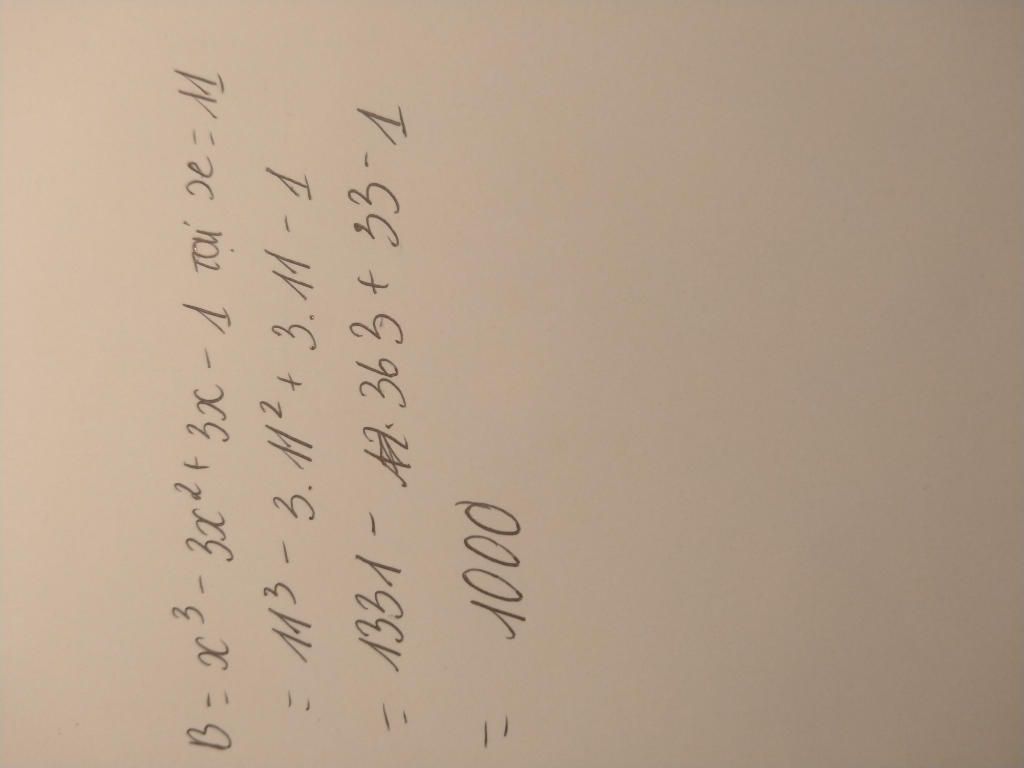 B = x³ - 3x² + 3x - 1 tại x = 11
= 11³ - 3.11² + 3.11 - 1
= 1331 - 363 + 33 - 1
= 1000